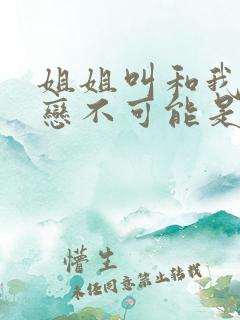 姐姐叫和我
戀不可能是
懵生
未经同意禁止转载